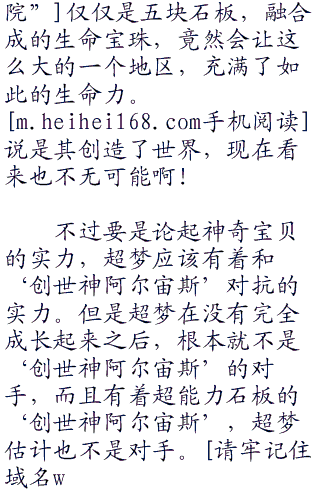 院”]仅仅是五块石板，融合
成的生命宝珠，竟然会让这
么大的一个地区，充满了如
此的生命力。
[m.heihei168.com手机阅读]
说是其创造了世界，现在看
来也不无可能啊！
不过要是论起神奇宝贝
的实力，超梦应该有着和
‘创世神阿尔宙斯’对抗的
实力。但是超梦在没有完全
成长起来之后，根本就不是
‘创世神阿尔宙斯’的对
手，而且有着超能力石板的
‘创世神阿尔宙斯’，超梦
估计也不是对手。[请牢记住
域名w